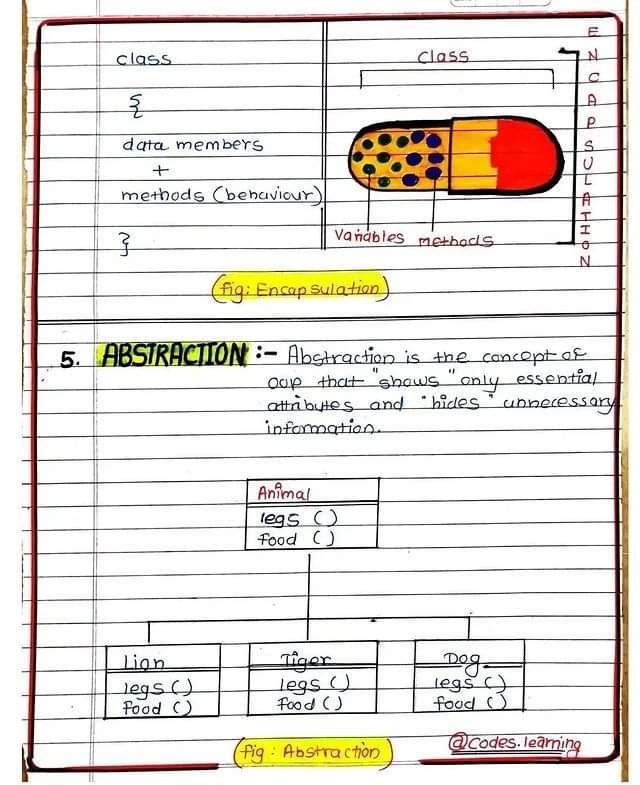 class
{
data members
+
methods (behaviour)
}
class
Variables methods
ENCAPSULATION
(fig: Encapsulation)
5. ABSTRACTION :- Abstraction is the concept of
oop that "shows" only essential
attributes and "hides" unnecessary
information.
Animal
legs ()
food ()
Lion
legs ()
food ()
Tiger
legs ()
food ()
Dog
legs ()
food ()
(fig: Abstraction)
@codes.learning